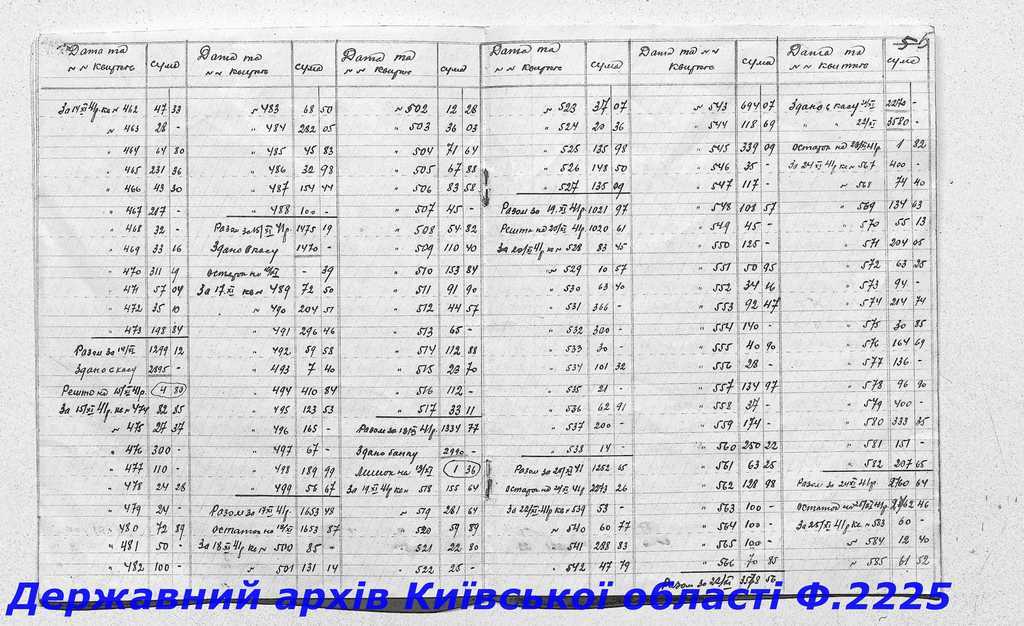 55
Дата та
№№ квитків
сума
За 14/XI 41р. кв № 462 47 33
№ 463 28 -
" 464 64 80
" 465 231 36
" 466 43 30
" 467 217 -
" 468 32 -
" 469 33 16
" 470 311 19
" 471 57 04
" 472 35 10
" 473 198 84
Разом за 14/XI 1299 12
Здано в касу 2895 -
Решта на 15/XI 41р. 4 80
За 15/XI 41р. кв № 474 82 85
№ 475 27 37
" 476 300 -
" 477 110 -
" 478 24 28
" 479 24 -
" 480 72 89
" 481 50 -
" 482 100 -
Дата та
№№ квитків
сума
№ 483 68 50
" 484 282 05
" 485 45 83
" 486 32 98
" 487 154 44
" 488 100 -
Разом за 15/XI 41р. 1475 19
Здано в касу 1470 -
Остаток на 16/XI - 39
За 17.XI кв № 489 72 50
№ 490 204 51
" 491 296 46
" 492 59 58
" 493 7 40
" 494 410 84
" 495 123 53
" 496 165 -
" 497 67 -
" 498 189 99
" 499 56 67
Разом за 17/XI 41р. 1653 48
Остаток на 18/XI 1653 87
За 18.XI 41р кв № 500 85 -
№ 501 131 14
Дата та
№№ квитків
сума
№ 502 12 28
" 503 36 03
" 504 71 64
" 505 67 88
" 506 83 58
" 507 45 -
" 508 54 82
" 509 110 40
" 510 153 84
" 511 91 90
" 512 44 57
" 513 65 -
" 514 112 88
" 515 23 70
" 516 112 -
" 517 33 11
Разом за 18/XI 41р. 1334 77
Здано банку 2990 -
Лишок на 19/XI 1 36
За 19.XI 41р кв № 518 155 64
№ 519 281 64
" 520 59 89
" 521 22 80
" 522 25 -
Дата та
№№ квитків
сума
№ 523 37 07
" 524 20 36
" 525 135 98
" 526 148 50
" 527 135 09
Разом за 19.XI 41р. 1021 97
Решта на 20/XI 41р 1020 61
За 20/XI 41р. кв № 528 83 45
№ 529 10 57
" 530 63 40
" 531 366 -
" 532 300 -
" 533 30 -
" 534 101 32
" 535 21 -
" 536 62 91
" 537 200 -
" 538 14 -
Разом за 20/XI 41 1252 65
Остаток на 21/XI 41р. 2273 26
За 22/XI 41р. кв № 539 53 -
№ 540 60 77
" 541 298 83
" 542 47 79
Дата та №№
квитків
сума
№ 543 694 07
" 544 118 69
" 545 339 09
" 546 35 -
" 547 117 -
" 548 108 57
" 549 45 -
" 550 125 -
" 551 50 95
" 552 34 16
" 553 92 47
" 554 140 -
" 555 40 90
" 556 28 -
" 557 134 97
" 558 37 -
" 559 174 -
" 560 250 22
" 561 63 25
" 562 128 98
" 563 100 -
" 564 100 -
" 565 100 -
" 566 70 85
Разом за 22/XI 3578 56
Дата та
№№ квитків
сума
Здано в касу 2270 -
" " 22/XI 3580 -
Остаток на 23/XI 41р 1 82
За 24.XI 41р кв № 567 400 -
№ 568 74 40
" 569 134 63
" 570 55 13
" 571 204 05
" 572 63 25
" 573 94 -
" 574 214 74
" 575 30 85
" 576 164 69
" 577 136 -
" 578 96 90
" 579 400 -
" 580 333 35
" 581 151 -
" 582 207 65
Разом за 24/XI 41р. 2760 64
Остаток на 25/XI 41р 2762 46
За 25/XI 41р кв № 583 60 -
№ 584 12 40
" 585 61 52
Державний архів Київської області Ф.2225